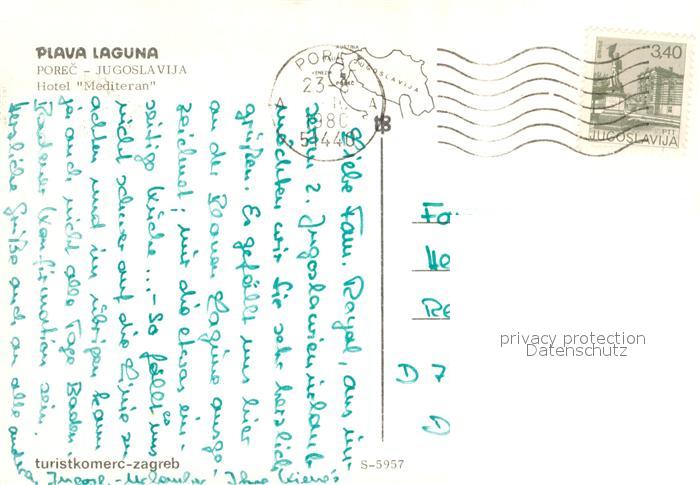 PLAVA LAGUNA
POREČ – JUGOSLAVIJA
Hotel "Mediteran"
POREČ
23-
1980
51440
AUSTRIA
JUGOSLAVIJA
3,40
PTT
JUGOSLAVIJA
Liebe Fam. aus un-
serem 2. Jugoslawienurlaub
möchten wir Sie sehr herzlich
grüßen. Es gefällt uns hier
an der Blauen Lagune ausge-
zeichnet; nur die etwas ein-
seitige Küche ...- So fällt es uns
nicht schwer auf die Linie zu
achten und im übrigen kann
ja auch nicht alle Tage Baden-
Badener Konfirmation sein.
Herzliche Grüße auch an alle
Jugosl.-Urlauber Ihre
Fa
He
Re
D 7
privacy protection
Datenschutz
turistkomerc-zagreb
S-5957